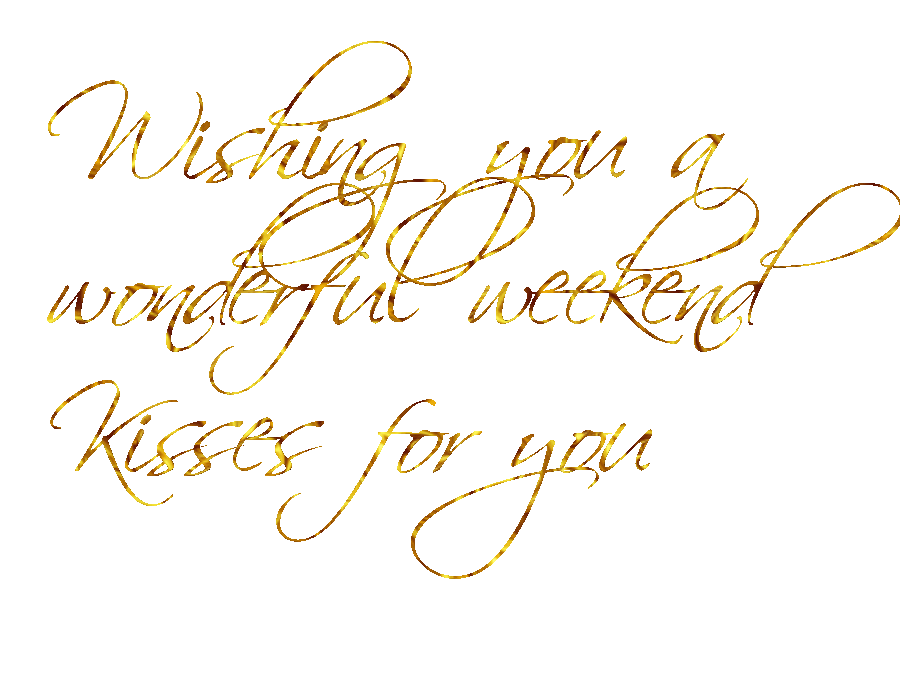 Wishing you a
wonderful weekend
Kisses for you